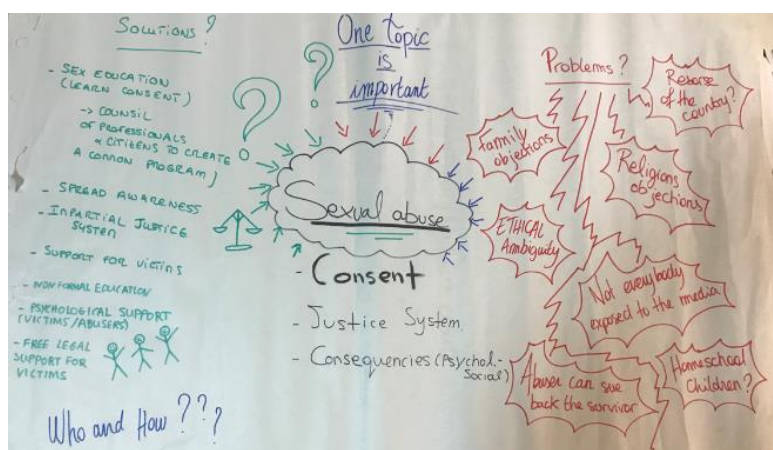 SOLUTIONS?
- SEX EDUCATION
(LEARN CONSENT)
-> COUNSIL
OF PROFESSIONALS
& CITIZENS TO CREATE
A COMMON PROGRAM)
- SPREAD AWARENESS
- INPARTIAL JUSTICE
SYSTEM
- SUPPORT FOR VICTINS
- NON FORNAL EDUCATION
- PSYCHOLOGICAL SUPPORT
(VICTINS/ABUSERS)
- FREE LEGAL
SUPPORT FOR
VICTINS
Who and How???
One Topic
is
important
Sexual abuse
- Consent
- Justice System.
- Consequencies (Psychol.-
Social)
Problems?
Resorse
of the
country?
family
objections
Religions
objections
ETHICAL
Ambiguity
Not everybody
exposed to the media
Abuser can sue
back the survivor
Homeschool
Children?